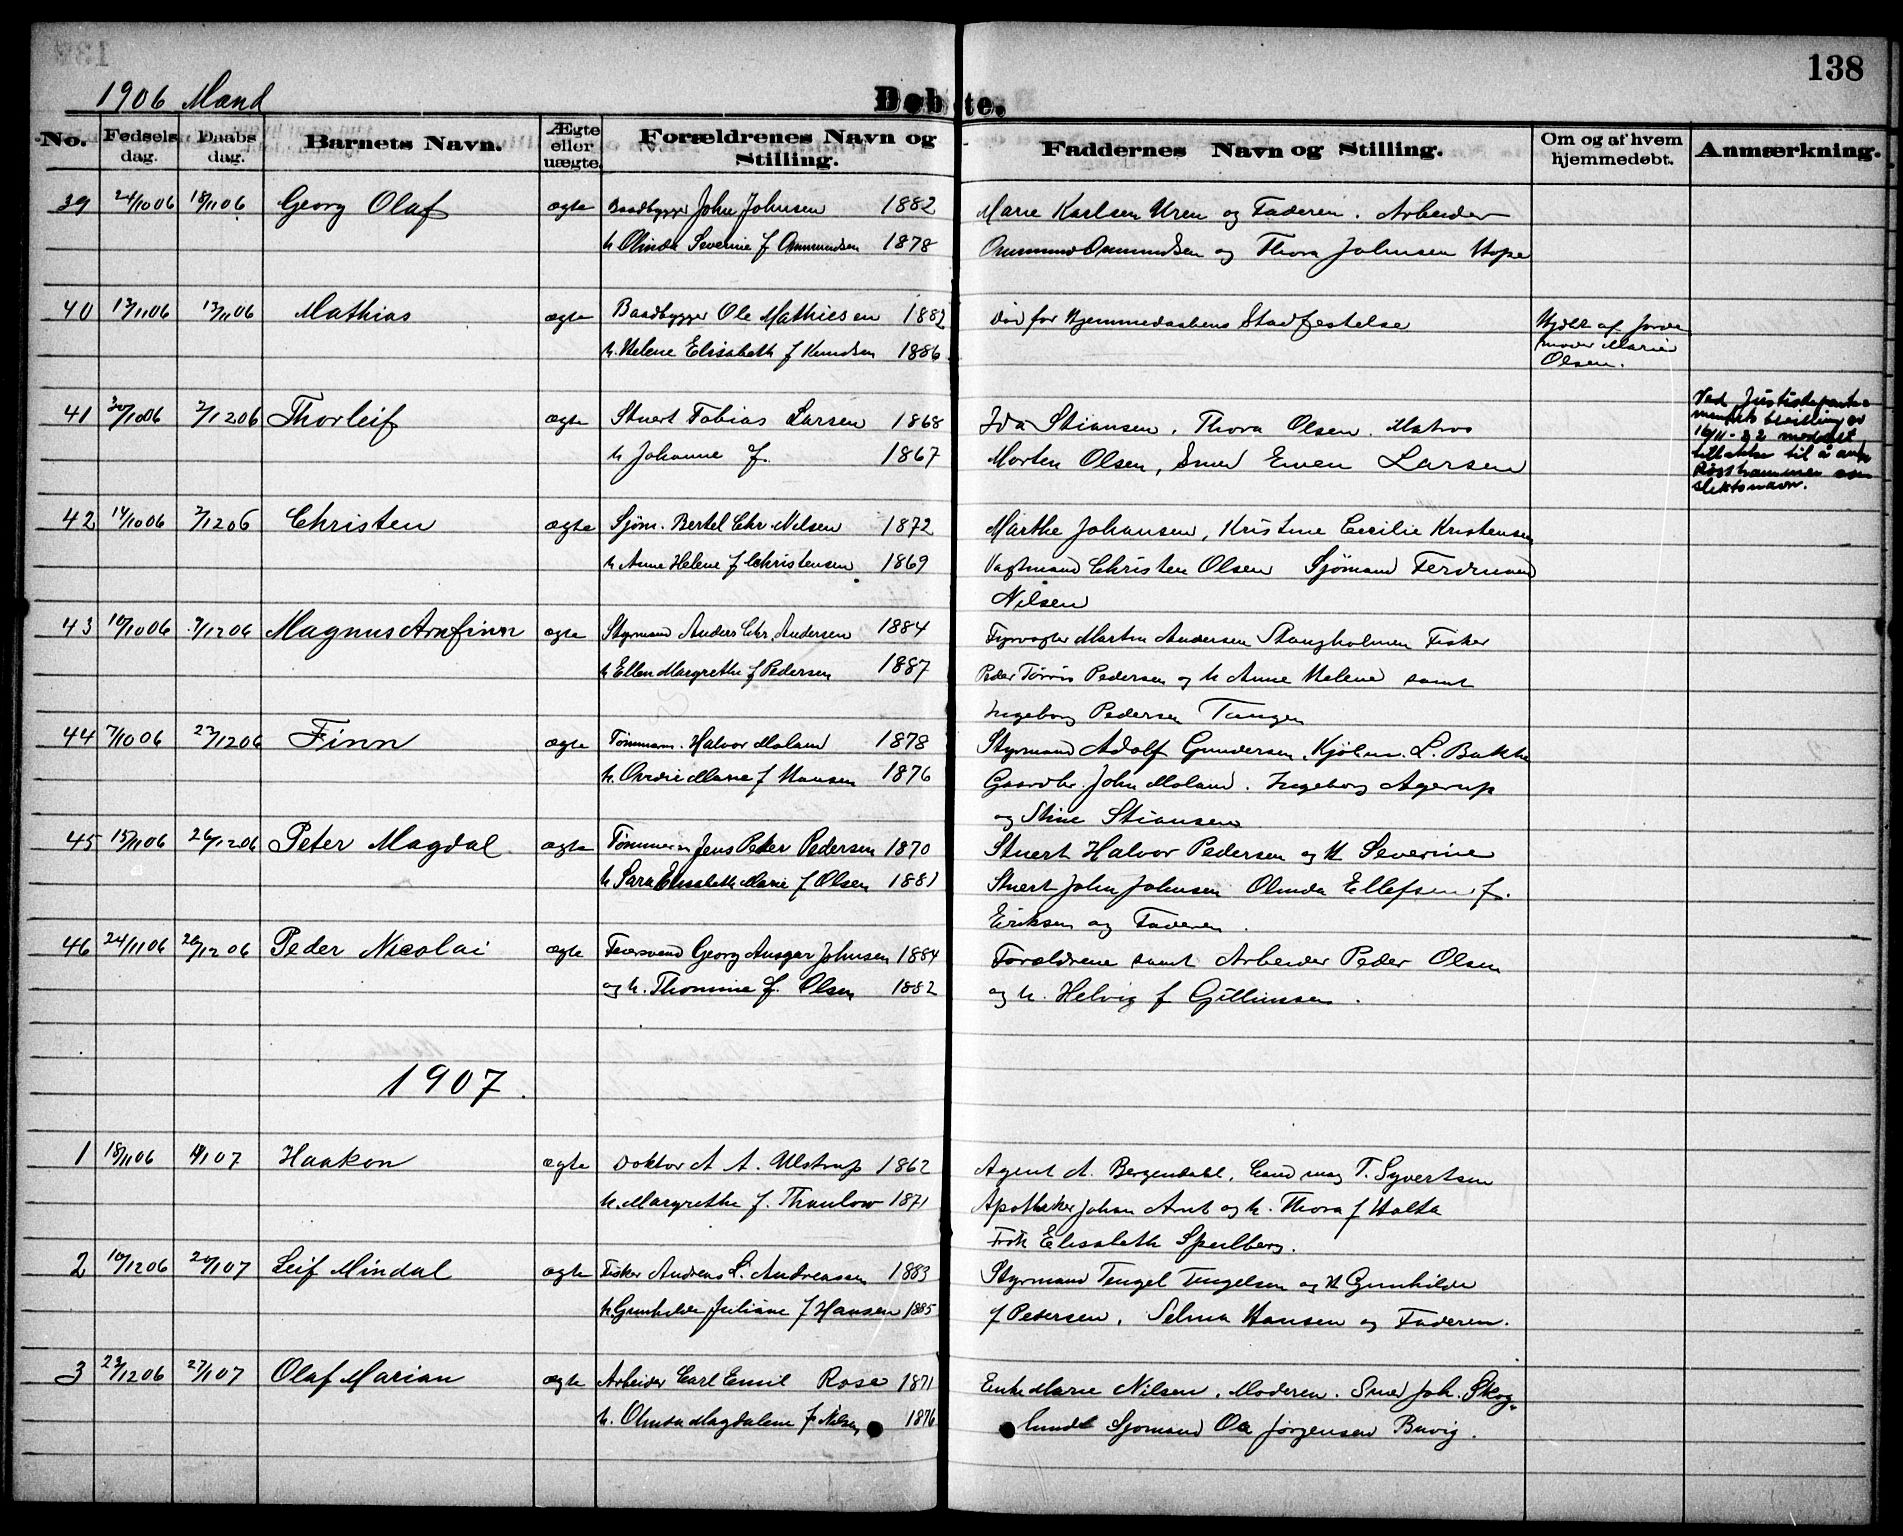 138
1906 Mand
Døbte.
No. Fødselsdag. Daabsdag. Barnets Navn. Ægte eller uægte. Forældrenes Navn og Stilling. Faddernes Navn og Stilling. Om og af hvem hjemmedøbt. Anmærkning.
39 24/10 06 18/11 06 Georg Olaf ægte Baadbygger John Johnsen 1882 Marie Karlsen Uren og Faderen. Arbeider
h Olinda Severine f Ommundsen 1878 Ommund Ommundsen og Thora Johnsen Hope
40 13/11 06 13/11 06 Mathias ægte Baadbygger Ole Mathiesen 1882 Død før Hjemmedaabens Stadfestelse Hjdbt af Jorde
h. Helene Elisabeth f Knudsen 1886 moder Marie
Olsen.
41 30/10 06 2/12 06 Thorleif ægte Stuert Tobias Larsen 1868 Ida Stiansen, Thora Olsen. Matros
h Johanne f. 1867 Morten Olsen, Smed Even Larsen
Ved Justisdeparte-
mentets bevilling av
16/11-22 meddelt
tilladelse til å anta
som
slektsnavn.
42 14/10 06 2/12 06 Christen ægte Sjøm. Bertel Chr. Nilsen 1872 Marthe Johansen, Kristine Cecilie Kristensen
h Anne Helene f Christensen 1869 Vagtmand Christen Olsen Sjømand Ferdinand
Nilsen
43 10/10 06 9/12 06 Magnus Arnfinn ægte Styrmand Anders Chr. Andersen 1884 Fyrvogter Martin Andersen Stangholmen Fisker
h Ellen Margrethe f Pedersen 1887 Peder Tørris Pedersen og h Anne Helene samt
Ingeborg Pedersen Tangen
44 7/10 06 23/12 06 Finn ægte Tømmerm. Halvor Moland 1878 Styrmand Adolf Gundersen, Kjøbm. L. Bakke
h. Ovidie Marie f Hansen 1876 Gaardbr. John Moland. Ingeborg Agerup
og Stine Stiansen
45 15/11 06 26/12 06 Peter Magdal ægte Tømmerm Jens Peder Pedersen 1870 Stuert Halvor Pedersen og H Severine
h Sara Elisabeth Marie f Olsen 1881 Stuert John Johnsen Olinda Ellefsen f.
Eriksen og Faderen.
46 24/11 06 26/12 06 Peder Nicolai ægte Georg Ansgar Johnsen 1884 Forældrene samt Arbeider Peder Olsen
og h. Thomine f. Olsen 1882 og h. Helvig f Gjttlinssen.
1907.
1 18/11 06 1 07 Haakon ægte Doktor A A. Ulstrup 1862 Agent A. Bergendahl, Cand mag T. Syvertsen
h. Margrethe f. Thaulow 1871 Apotheker Johan Arnt og h. Thora f Holta
Frøk Elisabeth Speilberg.
2 10/12 06 20/1 07 Leif Mindal ægte Fisker Andreas L. Andreassen 1883 Styrmand Tengel Tengelsen og H Gunhilde
h Gunhilde Juliane f Hansen 1885 f Pedersen, Selma Hansen og Faderen.
3 23/12 06 27/1 07 Olaf Marian ægte Arbeider Carl Emil Rose 1871 Enke Marie Nilsen, Moderen. Smed Joh. Skog-
h. Olinda Magdalene f. Nilsen 1876 lundt Sjømand Ole Jørgensen Buvig.